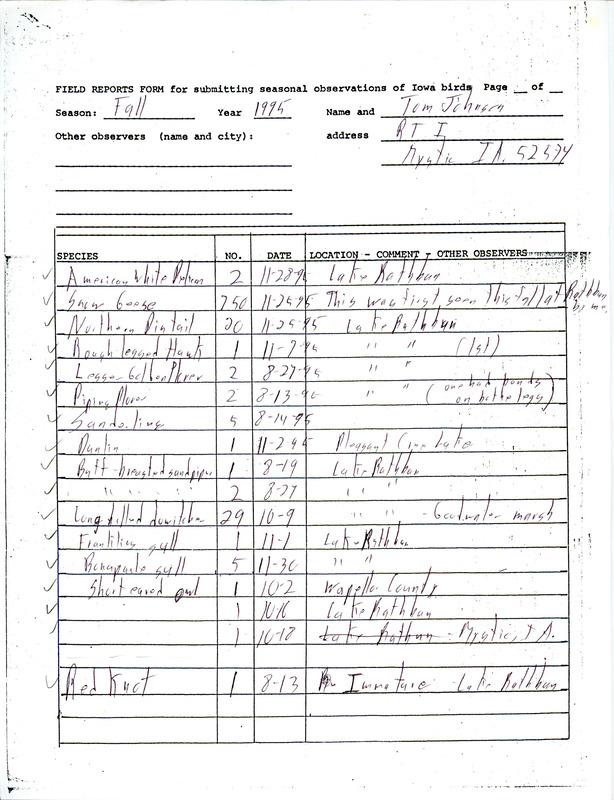 FIELD REPORTS FORM for submitting seasonal observations of Iowa birds Page __ of __
Season: Fall Year 1995 Name and Tom Johnson
Other observers (name and city): address RT 1
Mystic IA. 52574
SPECIES NO. DATE LOCATION - COMMENT - OTHER OBSERVERS
American White Pelican 2 11-28-95 Lake Rathbun
Snow Goose 750 11-25-95 This was first seen this fall at Rathbun by me.
Northern Pintail 20 11-25-95 Lake Rathbun
Rough legged Hawk 1 11-7-95 " " (1st)
Lesser Golden Plover 2 8-27-95 " "
Piping Plover 2 8-13-95 " " (one had bands on both legs)
Sanderling 5 8-14-95
Dunlin 1 11-2-95 Pleasant Lake
Buff-breasted sandpiper 1 8-19 Lake Rathbun
" " " 2 8-27 " "
Long billed dowitcher 29 10-9 " " - Goodwater marsh
Franklins gull 1 11-1 Lake Rathbun
Bonaparte gull 5 11-30 " "
Short eared owl 1 10-2 Wapello County
1 10-16 Lake Rathbun
1 10-18 Lake Rathbun - Mystic, IA.
Red Knot 1 8-13 Immature - Lake Rathbun